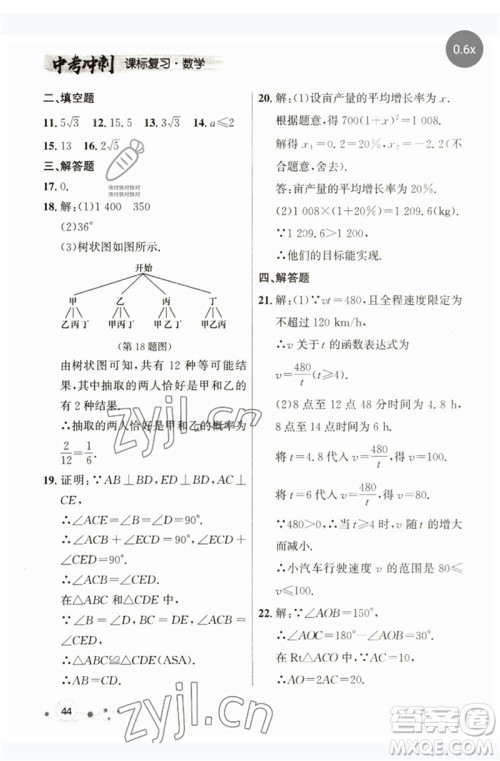 中考冲刺 课标复习·数学
0.6x
二、填空题
11. 5√3 12. 15.5 13. √3 14. a≤2
15. 13 16. 2√5
三、解答题
17. 0.
18. 解：(1)1 400 350
(2)36°
(3)树状图如图所示.
开始
甲 乙 丙 丁
乙丙丁 甲丙丁 甲乙丁 甲乙丙
(第18题图)
由树状图可知，共有 12 种等可能结果.其中抽取的两人恰好是甲和乙的
有 2 种结果.
∴抽取的两人恰好是甲和乙的概率为
2/12=1/6.
19. 证明：∵AB⊥BD,ED⊥BD,AC⊥
CE,
∴∠ACE=∠B=∠D=90°.
∴∠ACB+∠ECD=90°,∠ECD+
∠CED=90°.
∴∠ACB=∠CED.
在△ABC 和△CDE 中,
∴△ABC≌△CDE(ASA).
44
20. 解：(1)设亩产量的平均增长率为 x.
根据题意，得 700(1+x)²=1 008.
解得 x₁=0.2=20%,
合题意，舍去).
答：亩产量的平均增长率为 20%.
(2)1 008×(1+20%)=1 209.6(kg)
∵1 209.6>1 200,
∴他们的目标能实现.
四、解答题
21. 解：(1)∵vt=480,且全程速度限定为
不超过 120 km/h,
∴v 关于 t 的函数表达式为
v=480/t(t≥4).
(2)8 点至 12 点 48 分时间为 4.8 h,
8 点至 14 点时间为 6 h,
将 t=4.8 代入 v=480/t,得 v=100;
将 t=6 代入 v=480/t,得 v=80.
∵480>0,∴当 t≥4 时,v 随 t 的增大
而减小.
∴小汽车行驶速度 v 的范围为 80≤
v≤100.
22. 解：∵∠AOB=150°,
∴∠AOC=180°−∠AOB=30°.
在 Rt△ACO 中,AC=
zyjl.cn
zyjl.cn